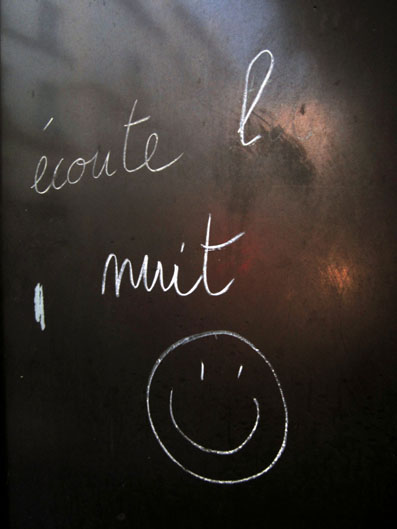 écoute l
nuit